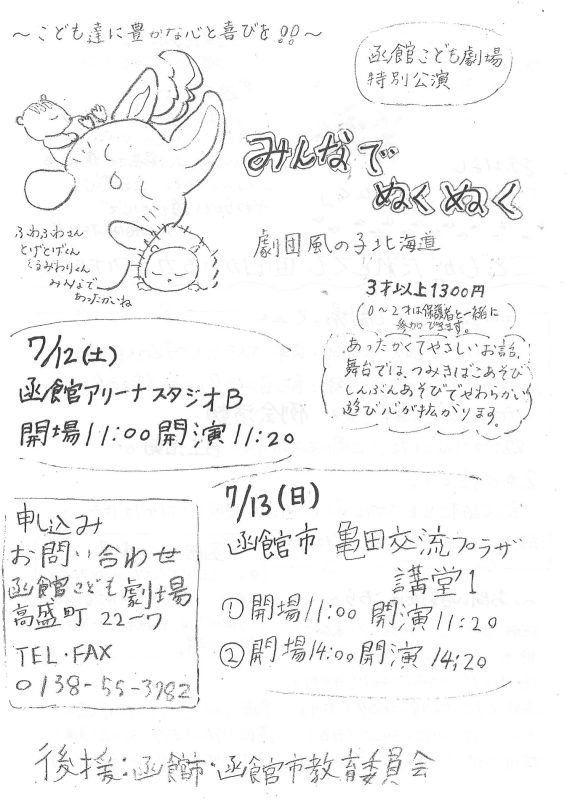 ～こども達に豊かな心と喜びを!!～
函館こども劇場
特別公演
みんなで
ぬくぬく
劇団風の子北海道
ふわふわさん
とげとげくん
くるみわりくん
みんなで
あったかいね
3才以上1300円
(0～2才は保護者と一緒に
参加できます。)
あったかくてやさしいお話。
舞台では、つみきばこあそび
しんぶんあそびでやわらかい
遊び心が拡がります。
7/12(土)
函館アリーナスタジオB
開場11:00開演11:20
7/13(日)
函館市 亀田交流プラザ
講堂1
①開場11:00 開演11:20
②開場14:00開演14:20
申し込み
お問い合わせ
函館こども劇場
高盛町 22-7
TEL・FAX
0138-55-3982
後援:函館市・函館市教育委員会